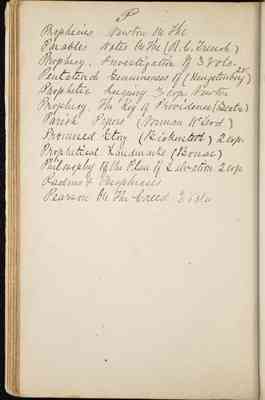 P
Prophecies Newton On the
Parables Notes On the (R. C. Trench)
Prophecy. Investigation of 3 Vols.
Pentateuch Genuineness of (Hengstenberg)
Prophetic Imagery 3 cops Newton
Prophecy. The Key of Providence
Parish Papers (Norman McLeod)
Promised Glory (Bickersteth) 2 cops.
Prophetical Landmarks (Bonar)
Philosophy of the Plan of Salvation 2 cops
Psalms & Paraphrases
Pearson On the Creed. 2 vols